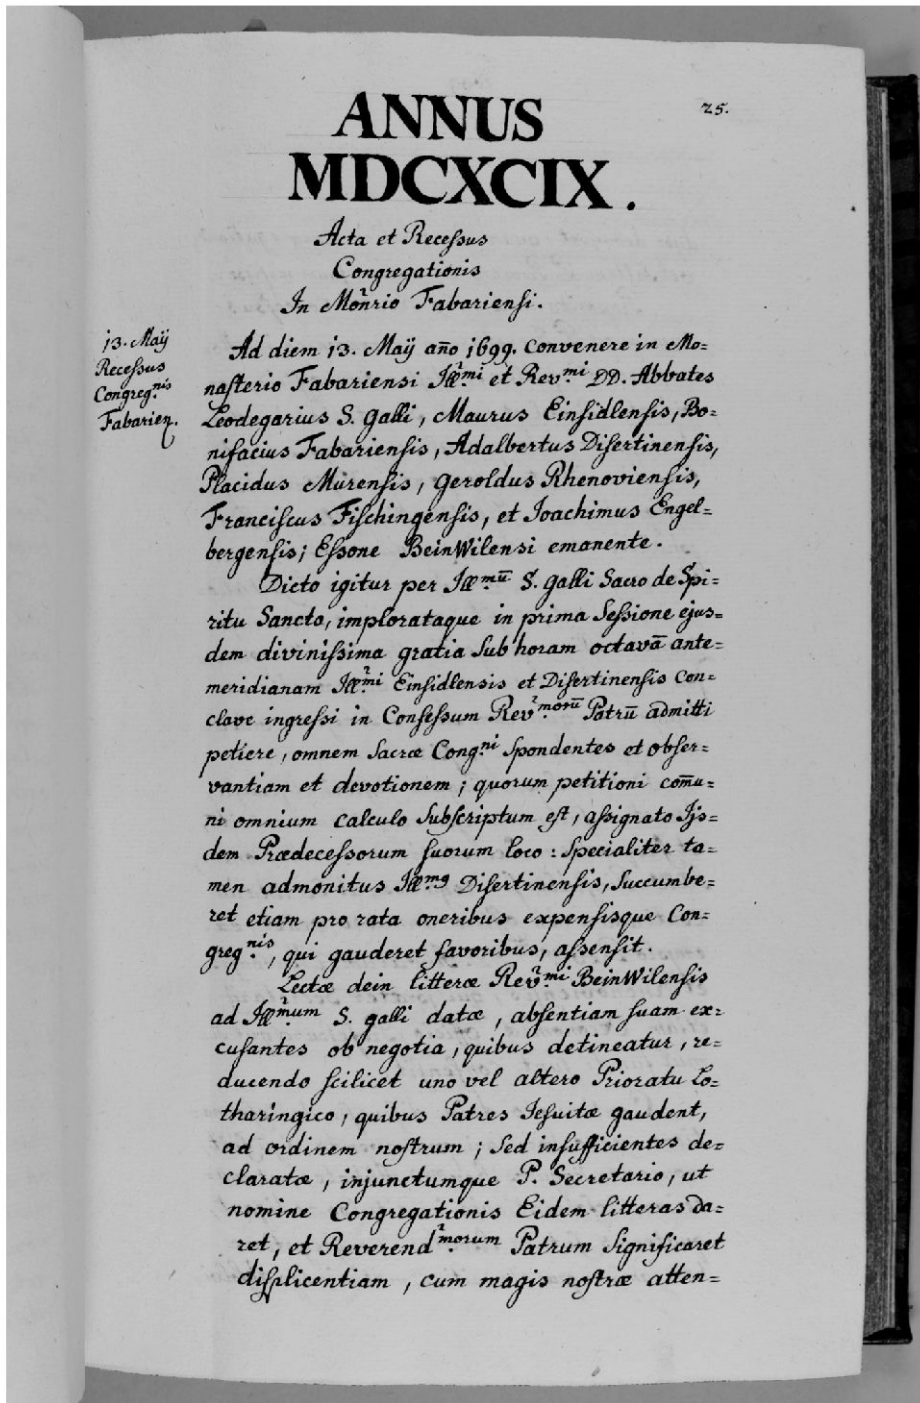 25.
ANNUS
MDCXCIX.
Acta et Recessus
Congregationis
In Monrio Fabariensi.
13. Maÿ
Recessus
Congreg.nis
Fabarien.
Ad diem 13. Maÿ año 1699. convenere in Mo=
nasterio Fabariensi Ill.mi et Rev.mi DD. Abbates
Leodegarius S. Galli, Maurus Einsidlensis, Bo=
nifacius Fabariensis, Adalbertus Disertinensis,
Placidus Murensis, Geroldus Rhenoviensis,
Franciscus Fischingensis, et Joachimus Engel=
bergensis; Essone BeinWilensi emanente.
Dicto igitur per Ill.mū S. Galli Sacro de Spi=
ritu Sancto, implorataque in prima Sessione ejus=
dem divinissima gratia sub horam octavā ante=
meridianam Ill.mi Einsidlensis et Disertinensis Con=
clave ingressi in Consessum Rev.morū Patrū admitti
petiere, omnem Sacræ Cong.ni spondentes et obser=
vantiam et devotionem; quorum petitioni com̄u=
ni omnium calculo subscriptum est, assignato Ijs=
dem Prædecessorum suorum loco: specialiter ta=
men admonitus Ill.mg Disertinensis, succumbe=
ret etiam pro rata oneribus expensisque Con=
greg.nis, qui gauderet favoribus, assensit.
Lectæ dein litteræ Rev.mi BeinWilensis
ad Ill.mum S. Galli datæ, absentiam suam ex=
cusantes ob negotia, quibus detineatur, re=
ducendo scilicet uno vel altero Prioratu Lo=
tharingico, quibus Patres Jesuitæ gaudent,
ad ordinem nostrum; sed insufficientes de=
claratæ, injunctumque P. Secretario, ut
nomine Congregationis Eidem litteras da=
ret, et Reverend.morum Patrum significaret
displicentiam, cum magis nostræ atten=